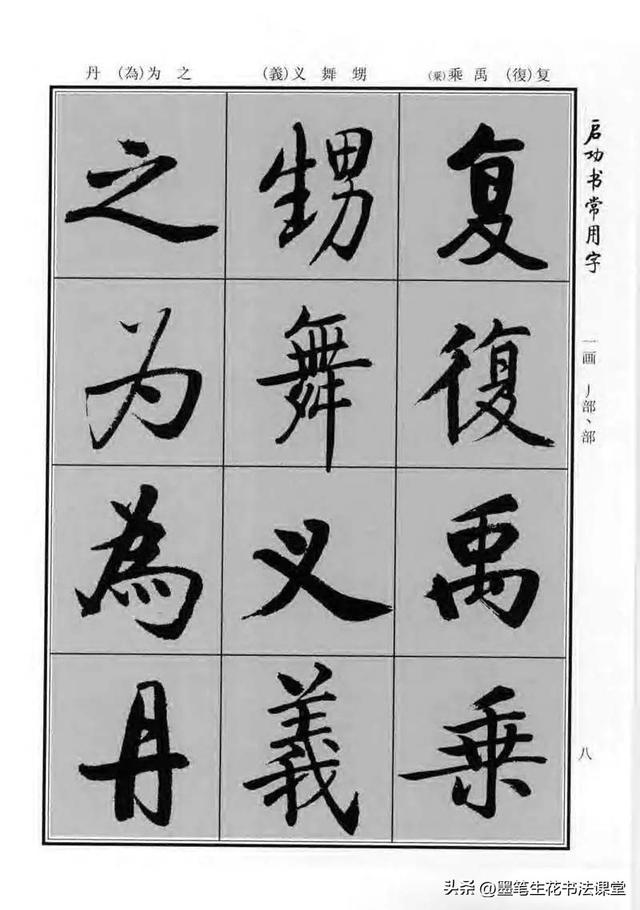 启功书常用字
一画 丿部丶部
八
复(復) 禹 乘
甥 舞 义(義)
之 为(為) 丹
复復禹乘
甥舞义義
之为為丹
头条 @墨笔生花书法课堂